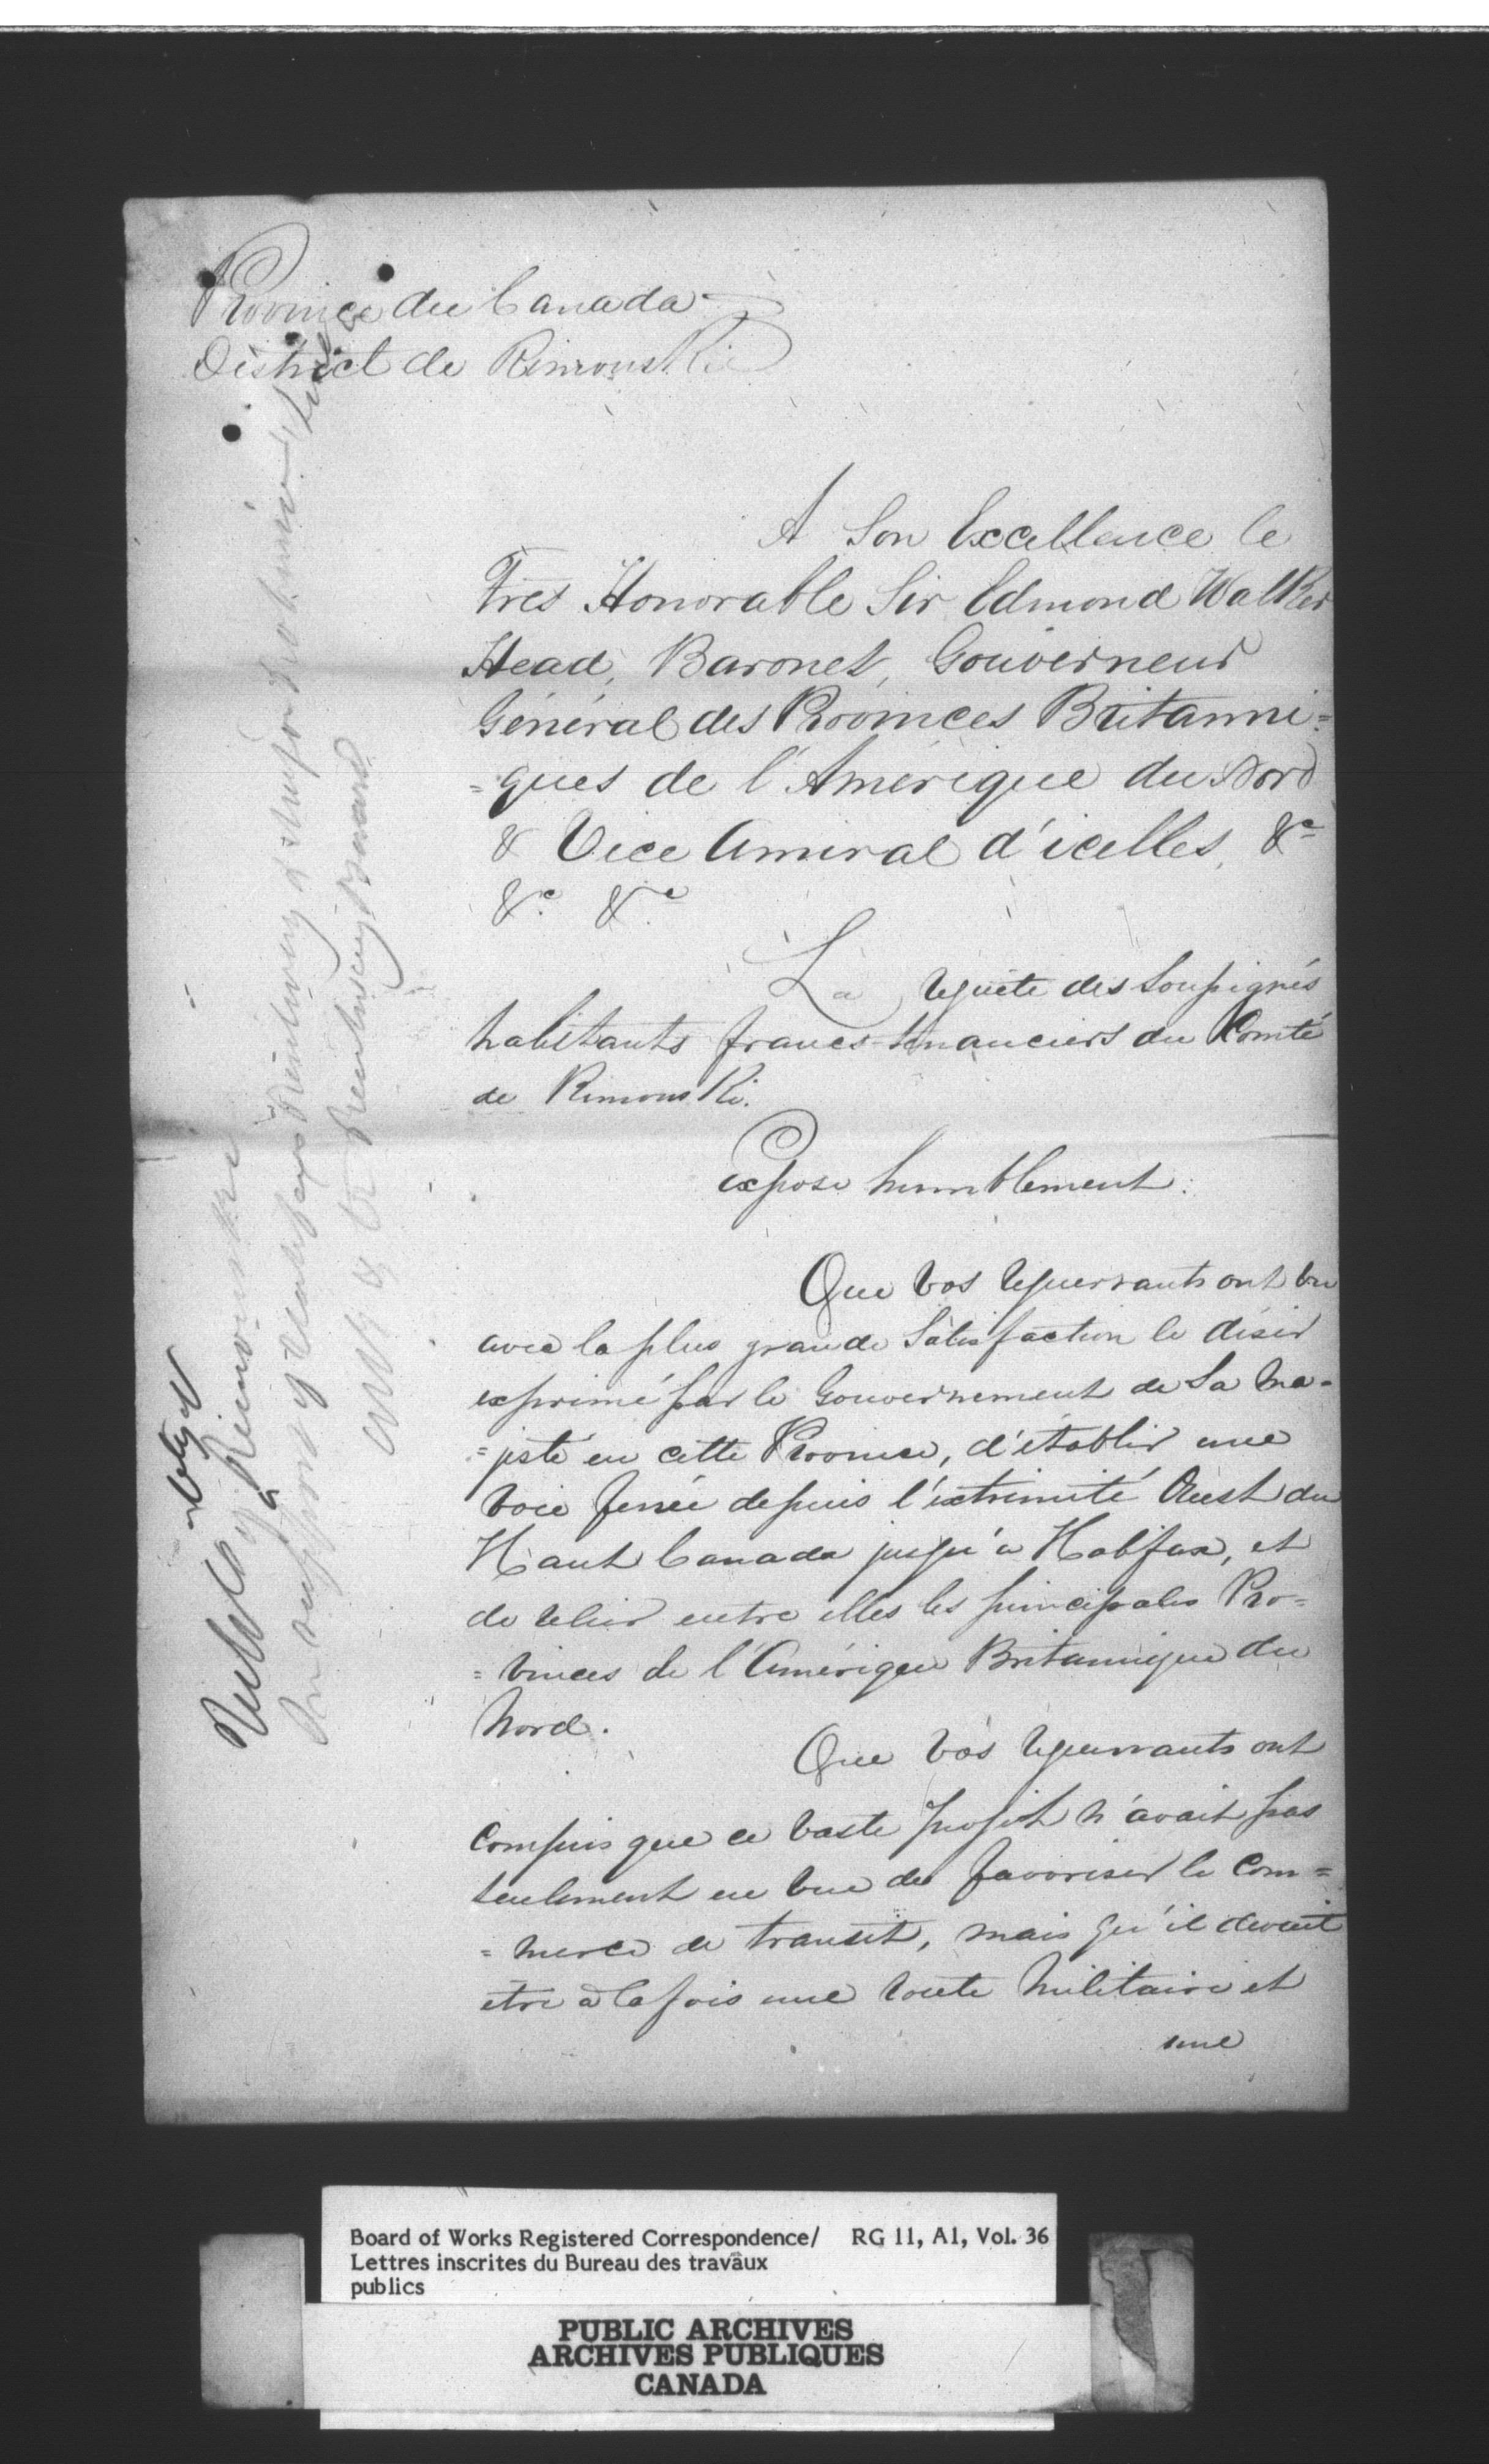 Province du Canada
District de Rimouski
A Son Excellence le
Très Honorable Sir Edmond Walker
Head, Baronet, Gouverneur
Général des Provinces Britanni=
=ques de l'Amérique du Nord
& Vice Amiral d'icelles, &c
&c &c
La requête des Soussignés
habitants francs-tenanciers du Comté
de Rimouski.
expose humblement:
Que vos requerrants ont vu
avec la plus grande Satisfaction le désir
exprimé par le Gouvernement de Sa Ma=
=jesté en cette Province, d'établir une
voie ferrée depuis l'extrimité Ouest du
Haut Canada jusqu'à Halifax, et
de relier entre elles les principales Pro=
=vinces de l'Amérique Britannique du
Nord.
Que vos requerrants ont
compris que ce vaste projet n'avait pas
seulement en vue de favoriser le Com=
=merce de transit, mais qu'il devait
etre à la fois une route Militaire et
une
Board of Works Registered Correspondence/ RG 11, A1, Vol. 36
Lettres inscrites du Bureau des travaux
publics
PUBLIC ARCHIVES
ARCHIVES PUBLIQUES
CANADA